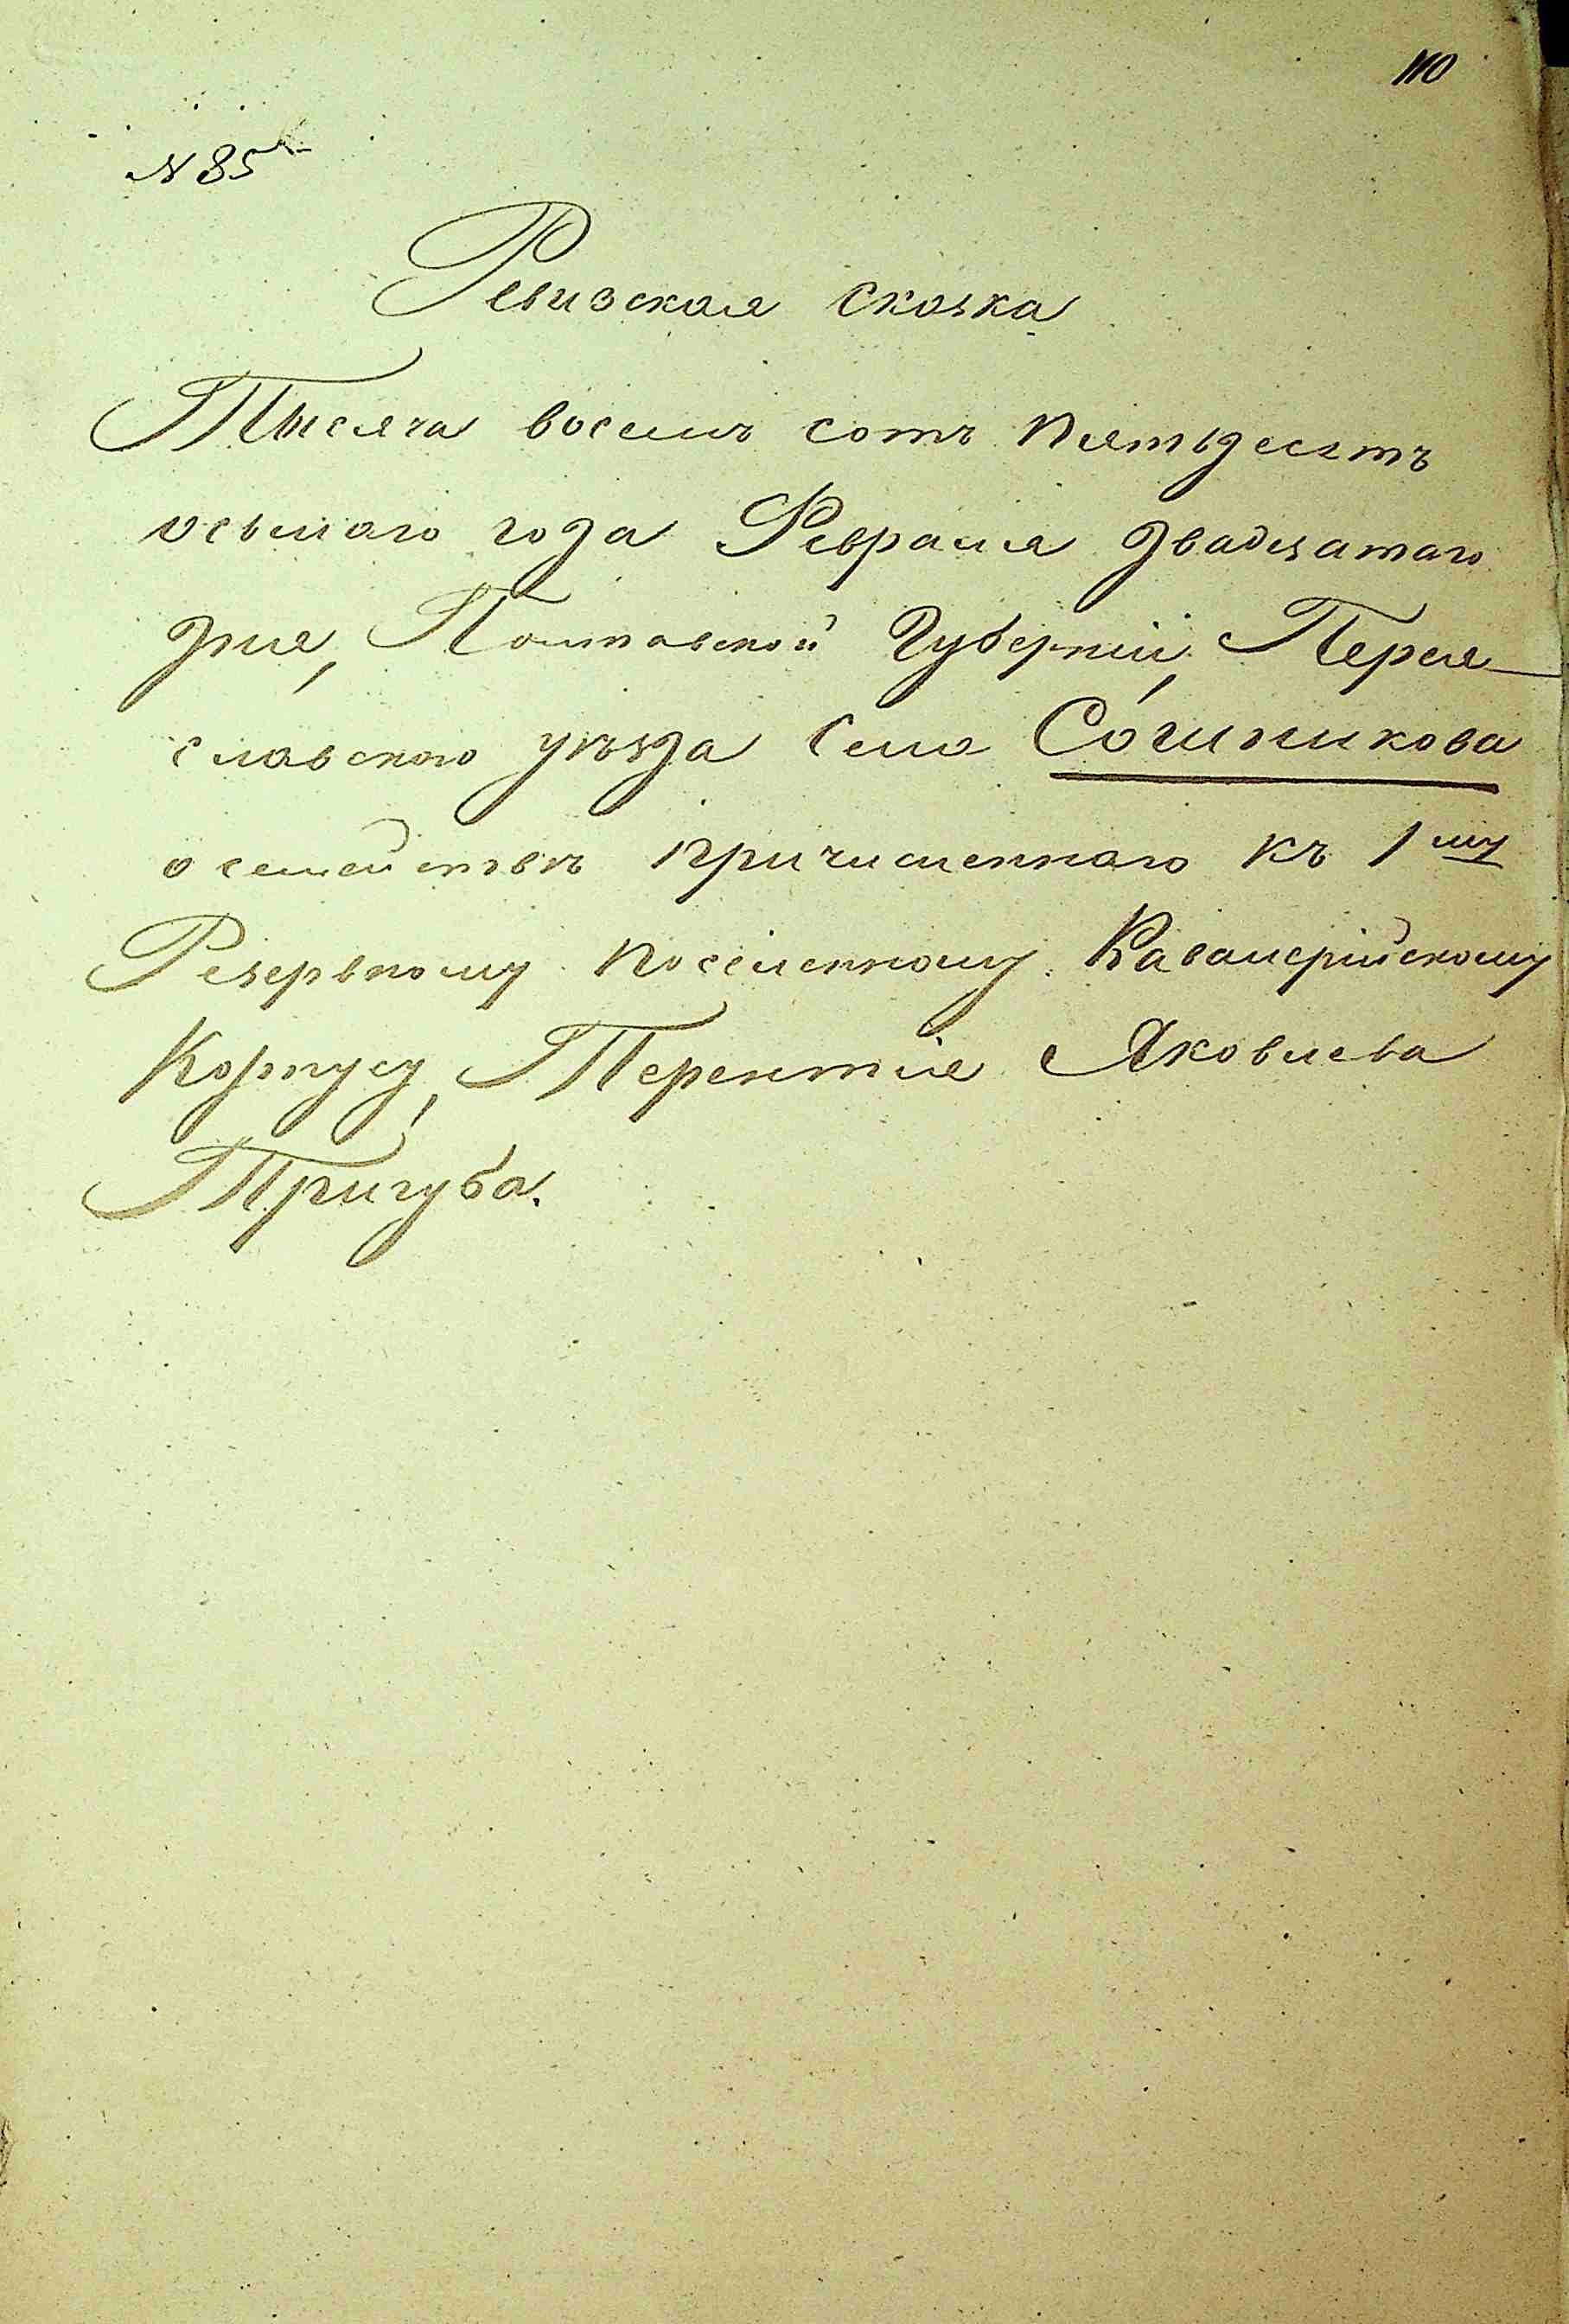 110
№ 85
Ревизская сказка
Тысяча восемь сотъ пятьдесятъ
осьмаго года Февраля двадцатаго
дня, Полтавской Губерніи, Перея
славского уѣзда Села Сошникова
о семействѣ причисленнаго къ 1му
Резервному поселенному Кавалерійскому
Корпусу, Терентія Яковлева
Тригуба.